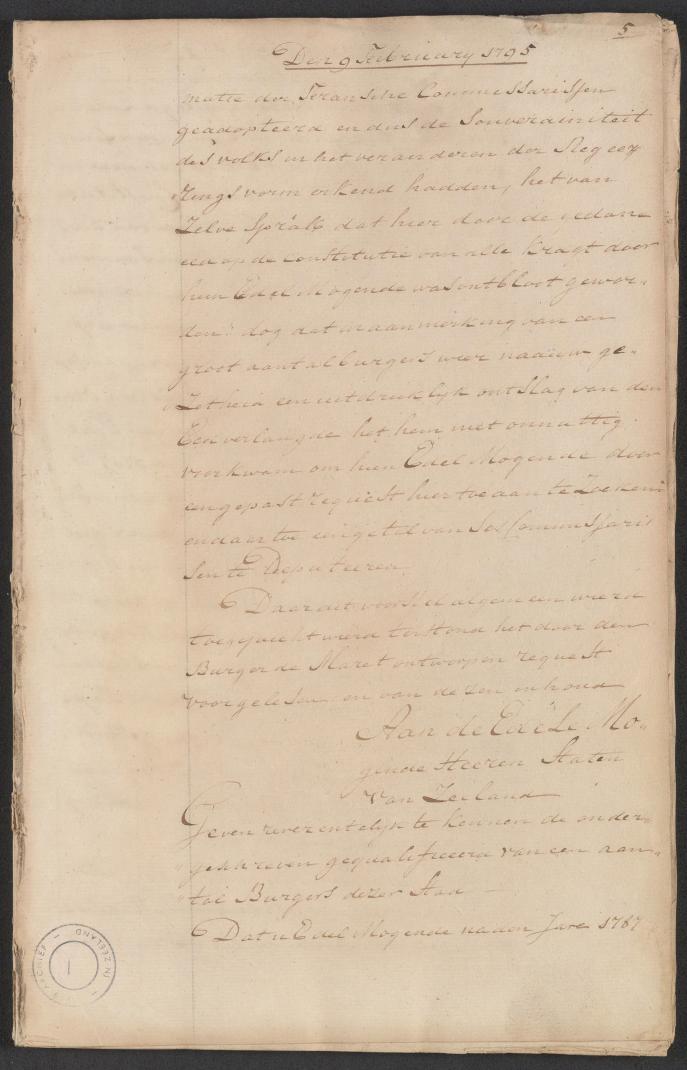 5
Den 9 February 1795
matie der Fransche Commissarissen
geadopteerd en dus de Souverainiteit
des volks in het veranderen der Regee-
rings vorm erkend hadden, het van
Zelve Sprak, dat hier door de gedane
eed op de Constitutie van alle kragt door
hun Edel Mogende was ontbloot gewor-
den: dog dat in aanmerking van een
groot aantal burgers wier naauw ge-
Zetheid een uitdruklyk ontslag van den
Eed verlangde het hem niet onnuttig
voorkwam om hun Edel Mogende door
een gepast request hier toe aan te Zoeken
en daar toe een getal van Ses Commissaris
sen te Deputeeren.
Daar dit voorstel algemeen wierd
toegejuicht wierd terstond het door den
Burger de Maret ontworpen request
voorgelesen en van dezen inhoud
Aan de Edele Mo-
gende Heeren Staten
Van Zeeland
Geven reverentelyk te kennen de onder-
geschreven gequalificeerd van een aan-
tal Burgers dezer Stad
Dat u Edel Mogende na den Jare 1787
ARCHIEF IN ZEELAND